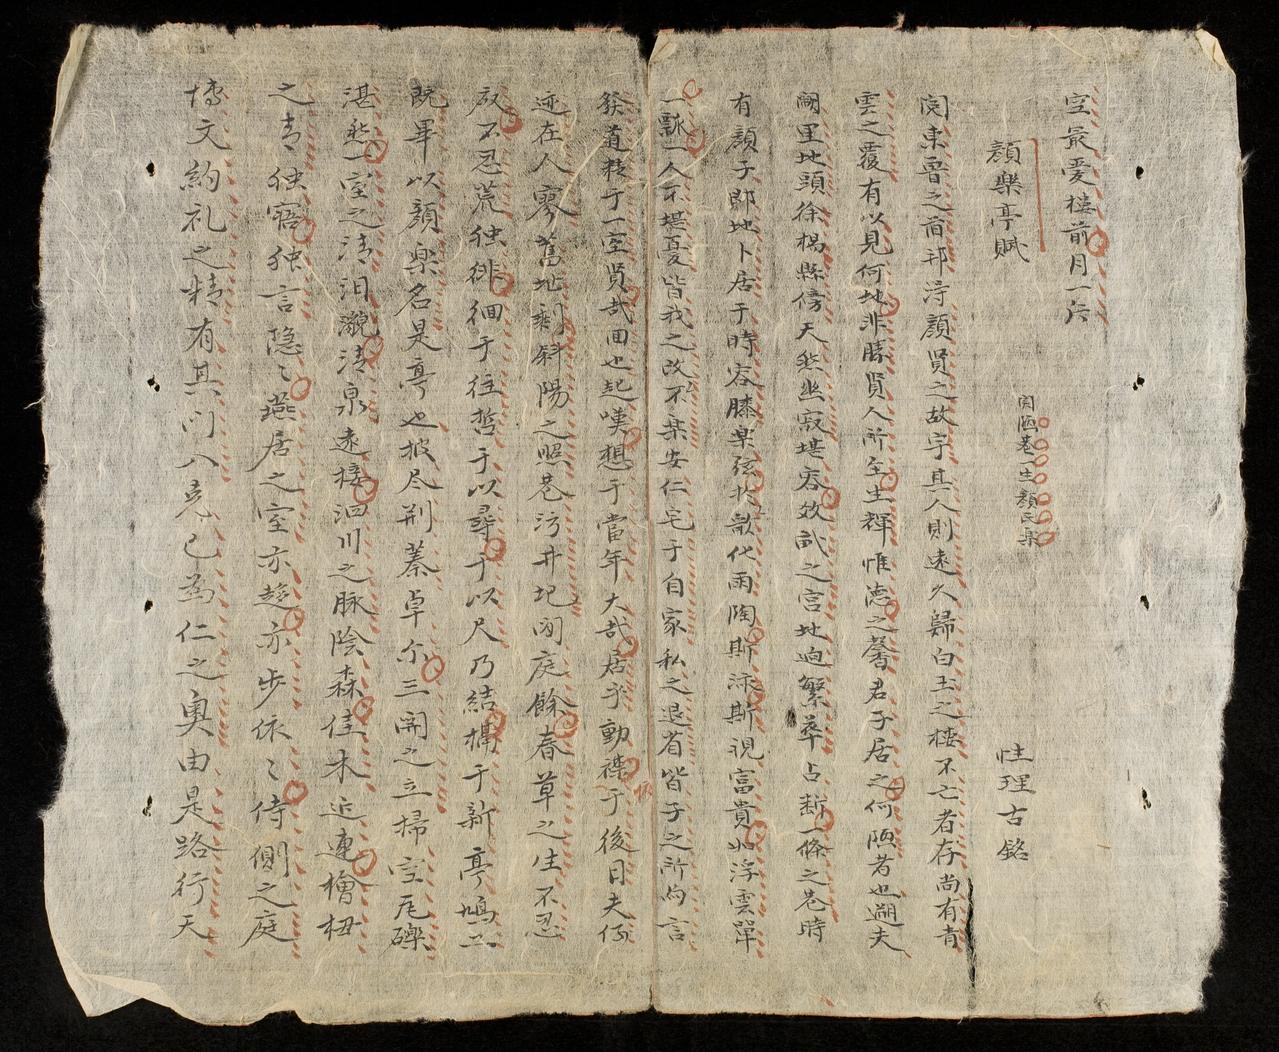 空最爱樓前月一片
顔樂亭賦
閱陋巷一生顔氏樂
性理古銘
閲東魯之前邦淂顔賢之故宇其人則遠久歸白玉之樓不亡者存尚有青
雲之覆有以見何地非勝賢人所至生輝惟德之馨君子居之何陋者也遡夫
闕里地頭徐楊縣傍天然幽寂堪容效試之宮地迫繁華占断一條之巷時
有顔子郎地卜居于時容膝樂弦北歌代雨陶斯泳斯視富貴如浮雲單
一瓢一人不堪憂皆我之改不樂安仁宅于自家私之退省皆子之所向言
發道移于一室賢哉回也起嘆想于當年大哉居乎動襟于後日夫何
迹在人寥舊地剩斜陽之照巷污井圮閑庭餘春草之生不忍
廢不忍荒独徘徊于往哲于以尋于以尺乃結搆于新亭鳩工
既畢以顔樂名是亭也披尽荆蓁卓尓三開之立掃空瓦礫
湛然一室之清汨㶁清泉遠接泗川之脉陰森佳木近連檜杻
之青独寤独言隐〻燕居之室亦趍亦步依〻侍側之庭
博文約礼之精有其门入克己為仁之奥由是路行天